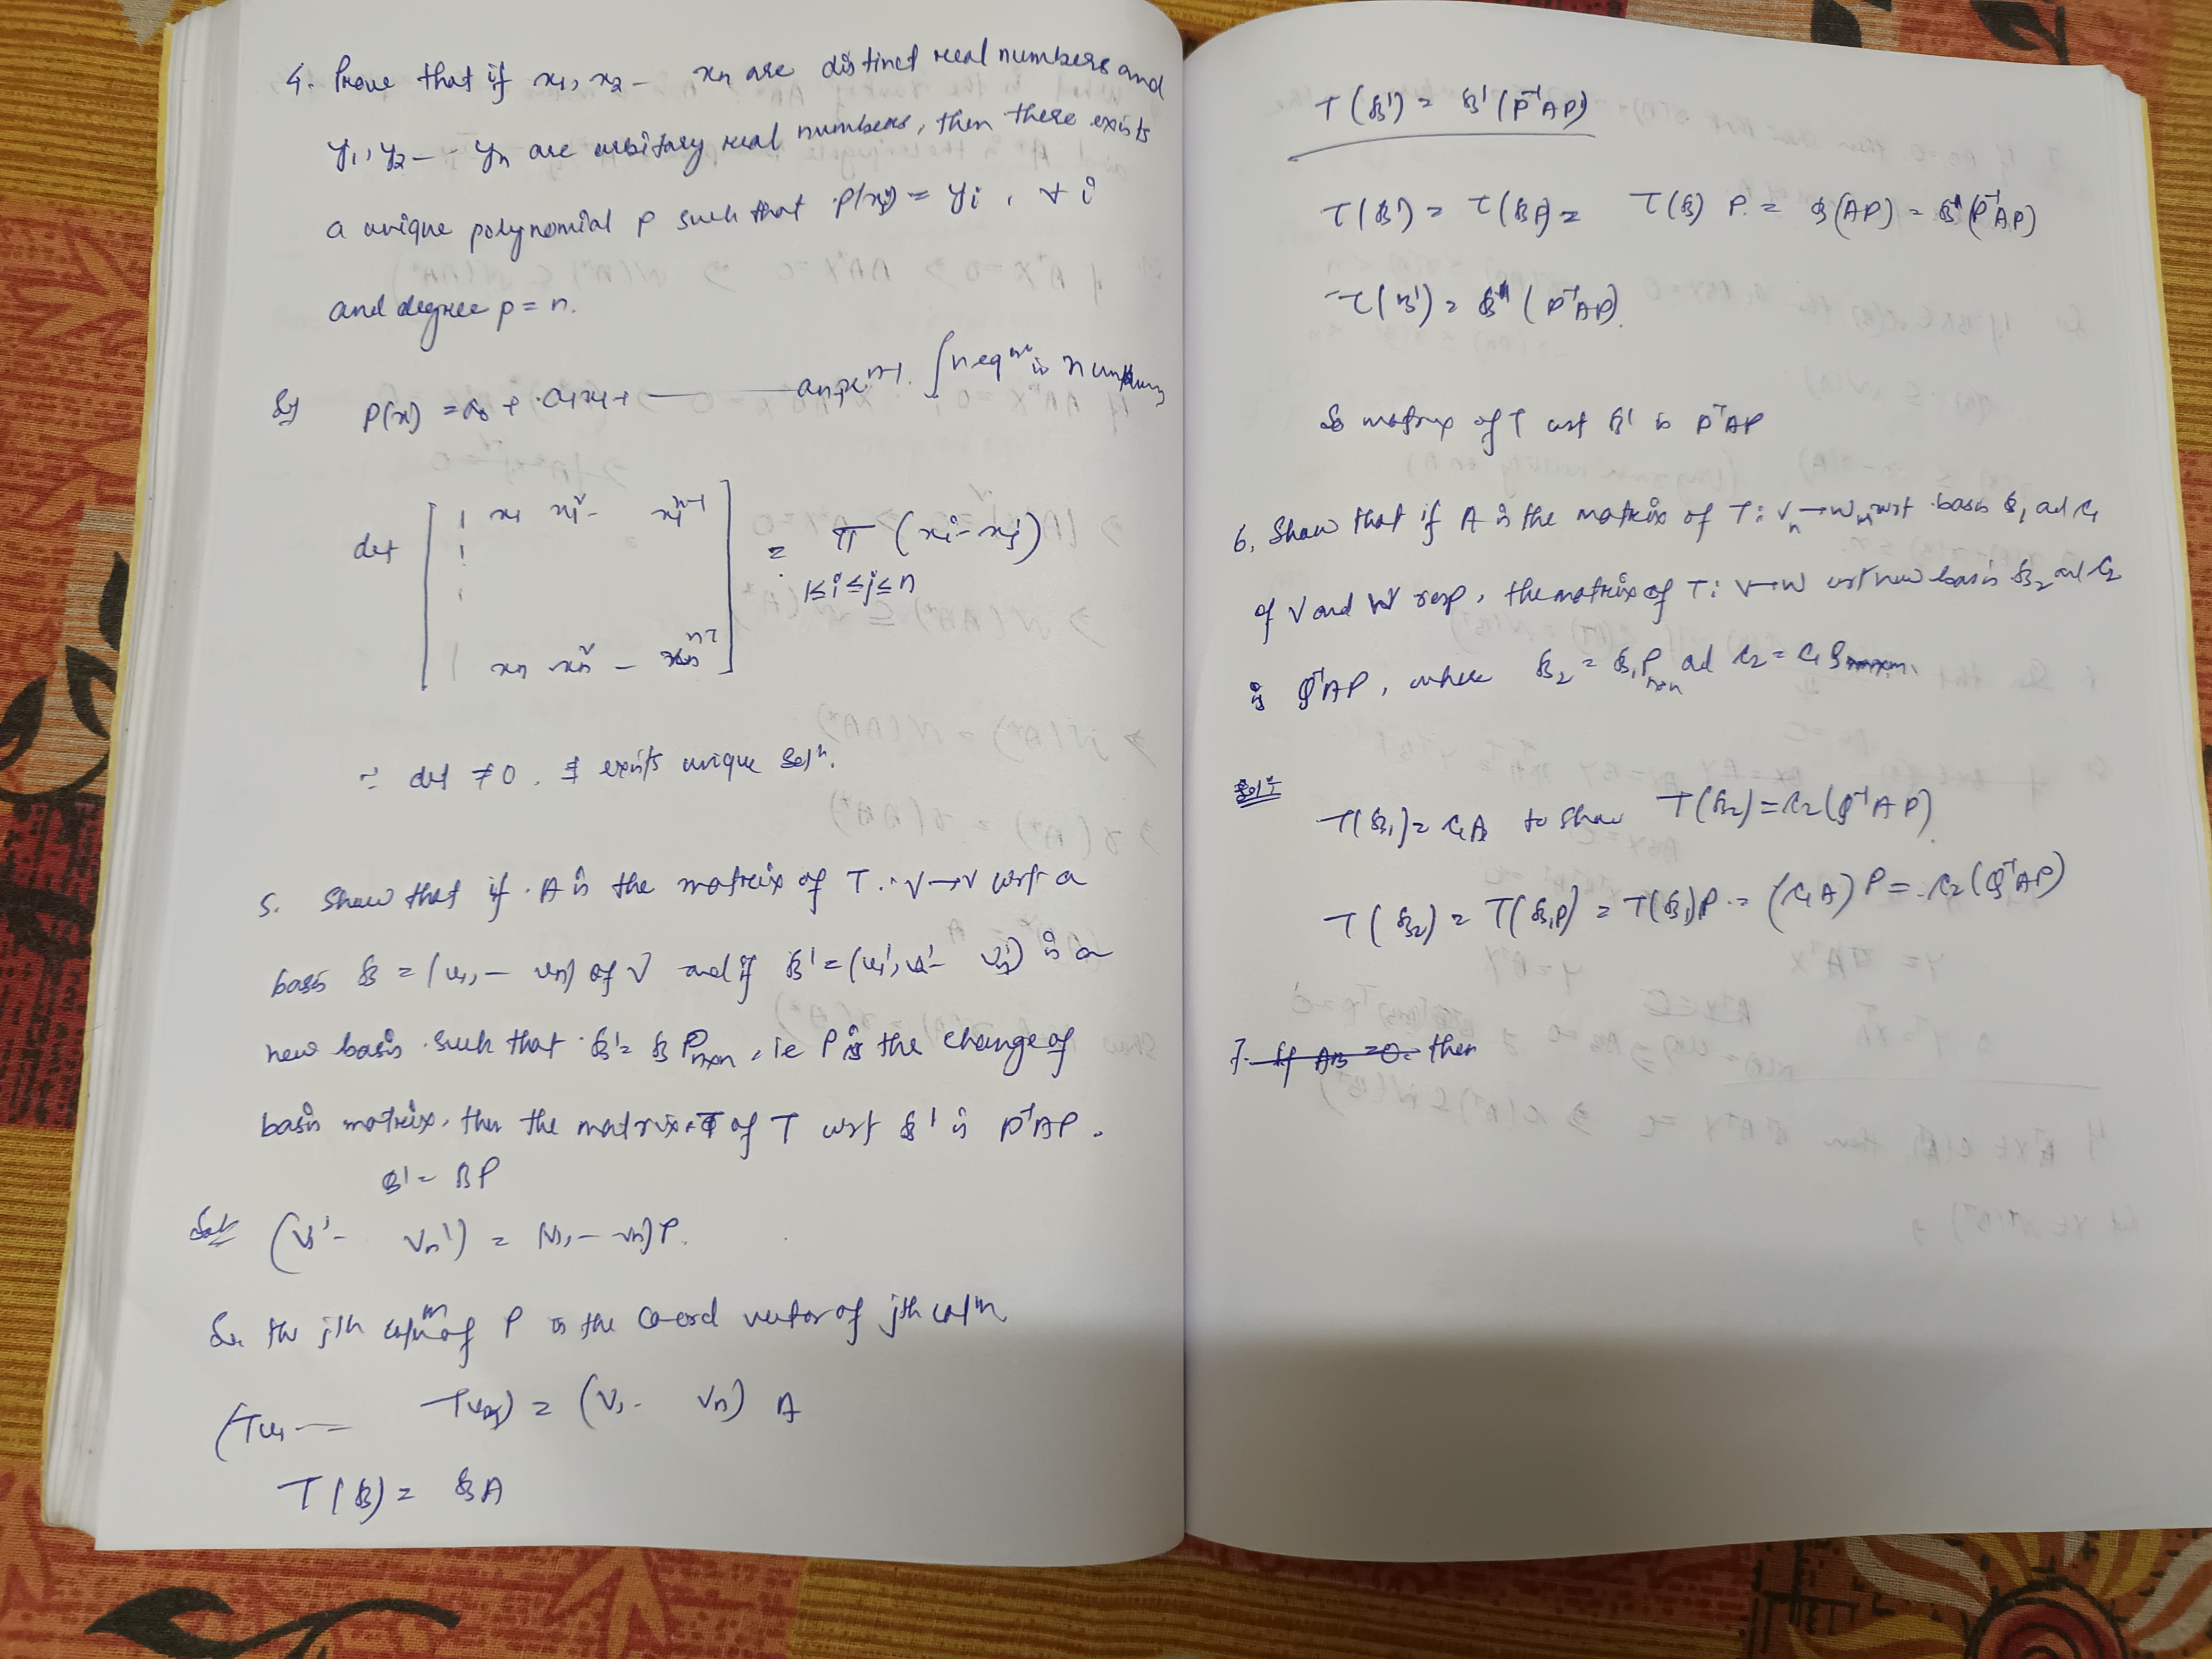 4. Prove that if x1, x2 - xn are distinct real numbers and
y1, y2 - - yn are arbitary real numbers, then there exists
a unique polynomial p such that p(xi) = yi, ∀ i
and degree p = n.
P(x) = a0 + a1x1 + ——— an-1x^n-1. ∫ n eqn in n unknowns
det [ 1 x1 x1² - x1^n-1
1
1
1 xn xn² - xn^n-1 ] = π (xi - xj)
1≤i≤j≤n
∵ det ≠ 0. ∃ exists unique soln.
5. Show that if A is the matrix of T: V→V wrt a
basis B = (v1, - vn) of V and if B' = (v1', v2' - vn') is a
new basis such that B' = B Pnxn, ie P is the change of
basis matrix, then the matrix of T wrt B' is P⁻¹AP.
B' = BP
Sol (v1' - vn') = (v1, - vn)P.
So the jth colm of P is the co-ord vector of jth colm
(Tv1 — Tvn) = (v1 - vn) A
T(B) = BA
T(B') = B'(P⁻¹AP)
T(B') = T(BP) = T(B) P = B(AP) = B'(P⁻¹AP)
T(B') = B'(P⁻¹AP).
So matrix of T wrt B' is P⁻¹AP
6. Show that if A is the matrix of T: Vn→Wm wrt basis B1 ad C1
of V and W resp, the matrix of T: V→W wrt new basis B2 ad C2
is Q⁻¹AP, where B2 = B1Pnxn ad C2 = C1Qmxm.
Sol: T(B1) = C1A to show T(B2) = C2(Q⁻¹AP)
T(B2) = T(B1P) = T(B1)P = (C1A)P = C2(Q⁻¹AP)
7. If AB = 0. then